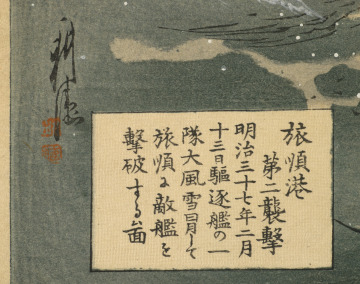 旅順港
第二襲撃
明治三十七年二月
十三日駆逐艦の一
隊大風雪冐して
旅順に敵艦を
撃破する圖